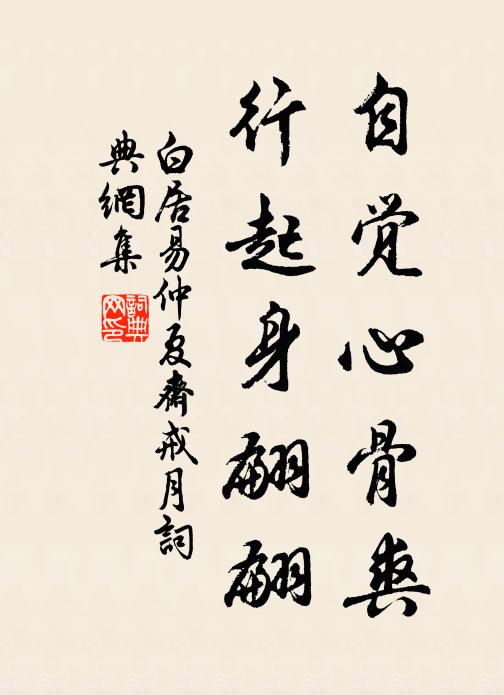 自觉心骨爽
行起身翩翩
白居易仲夏齋戒月詞
典網集
詞典
网印